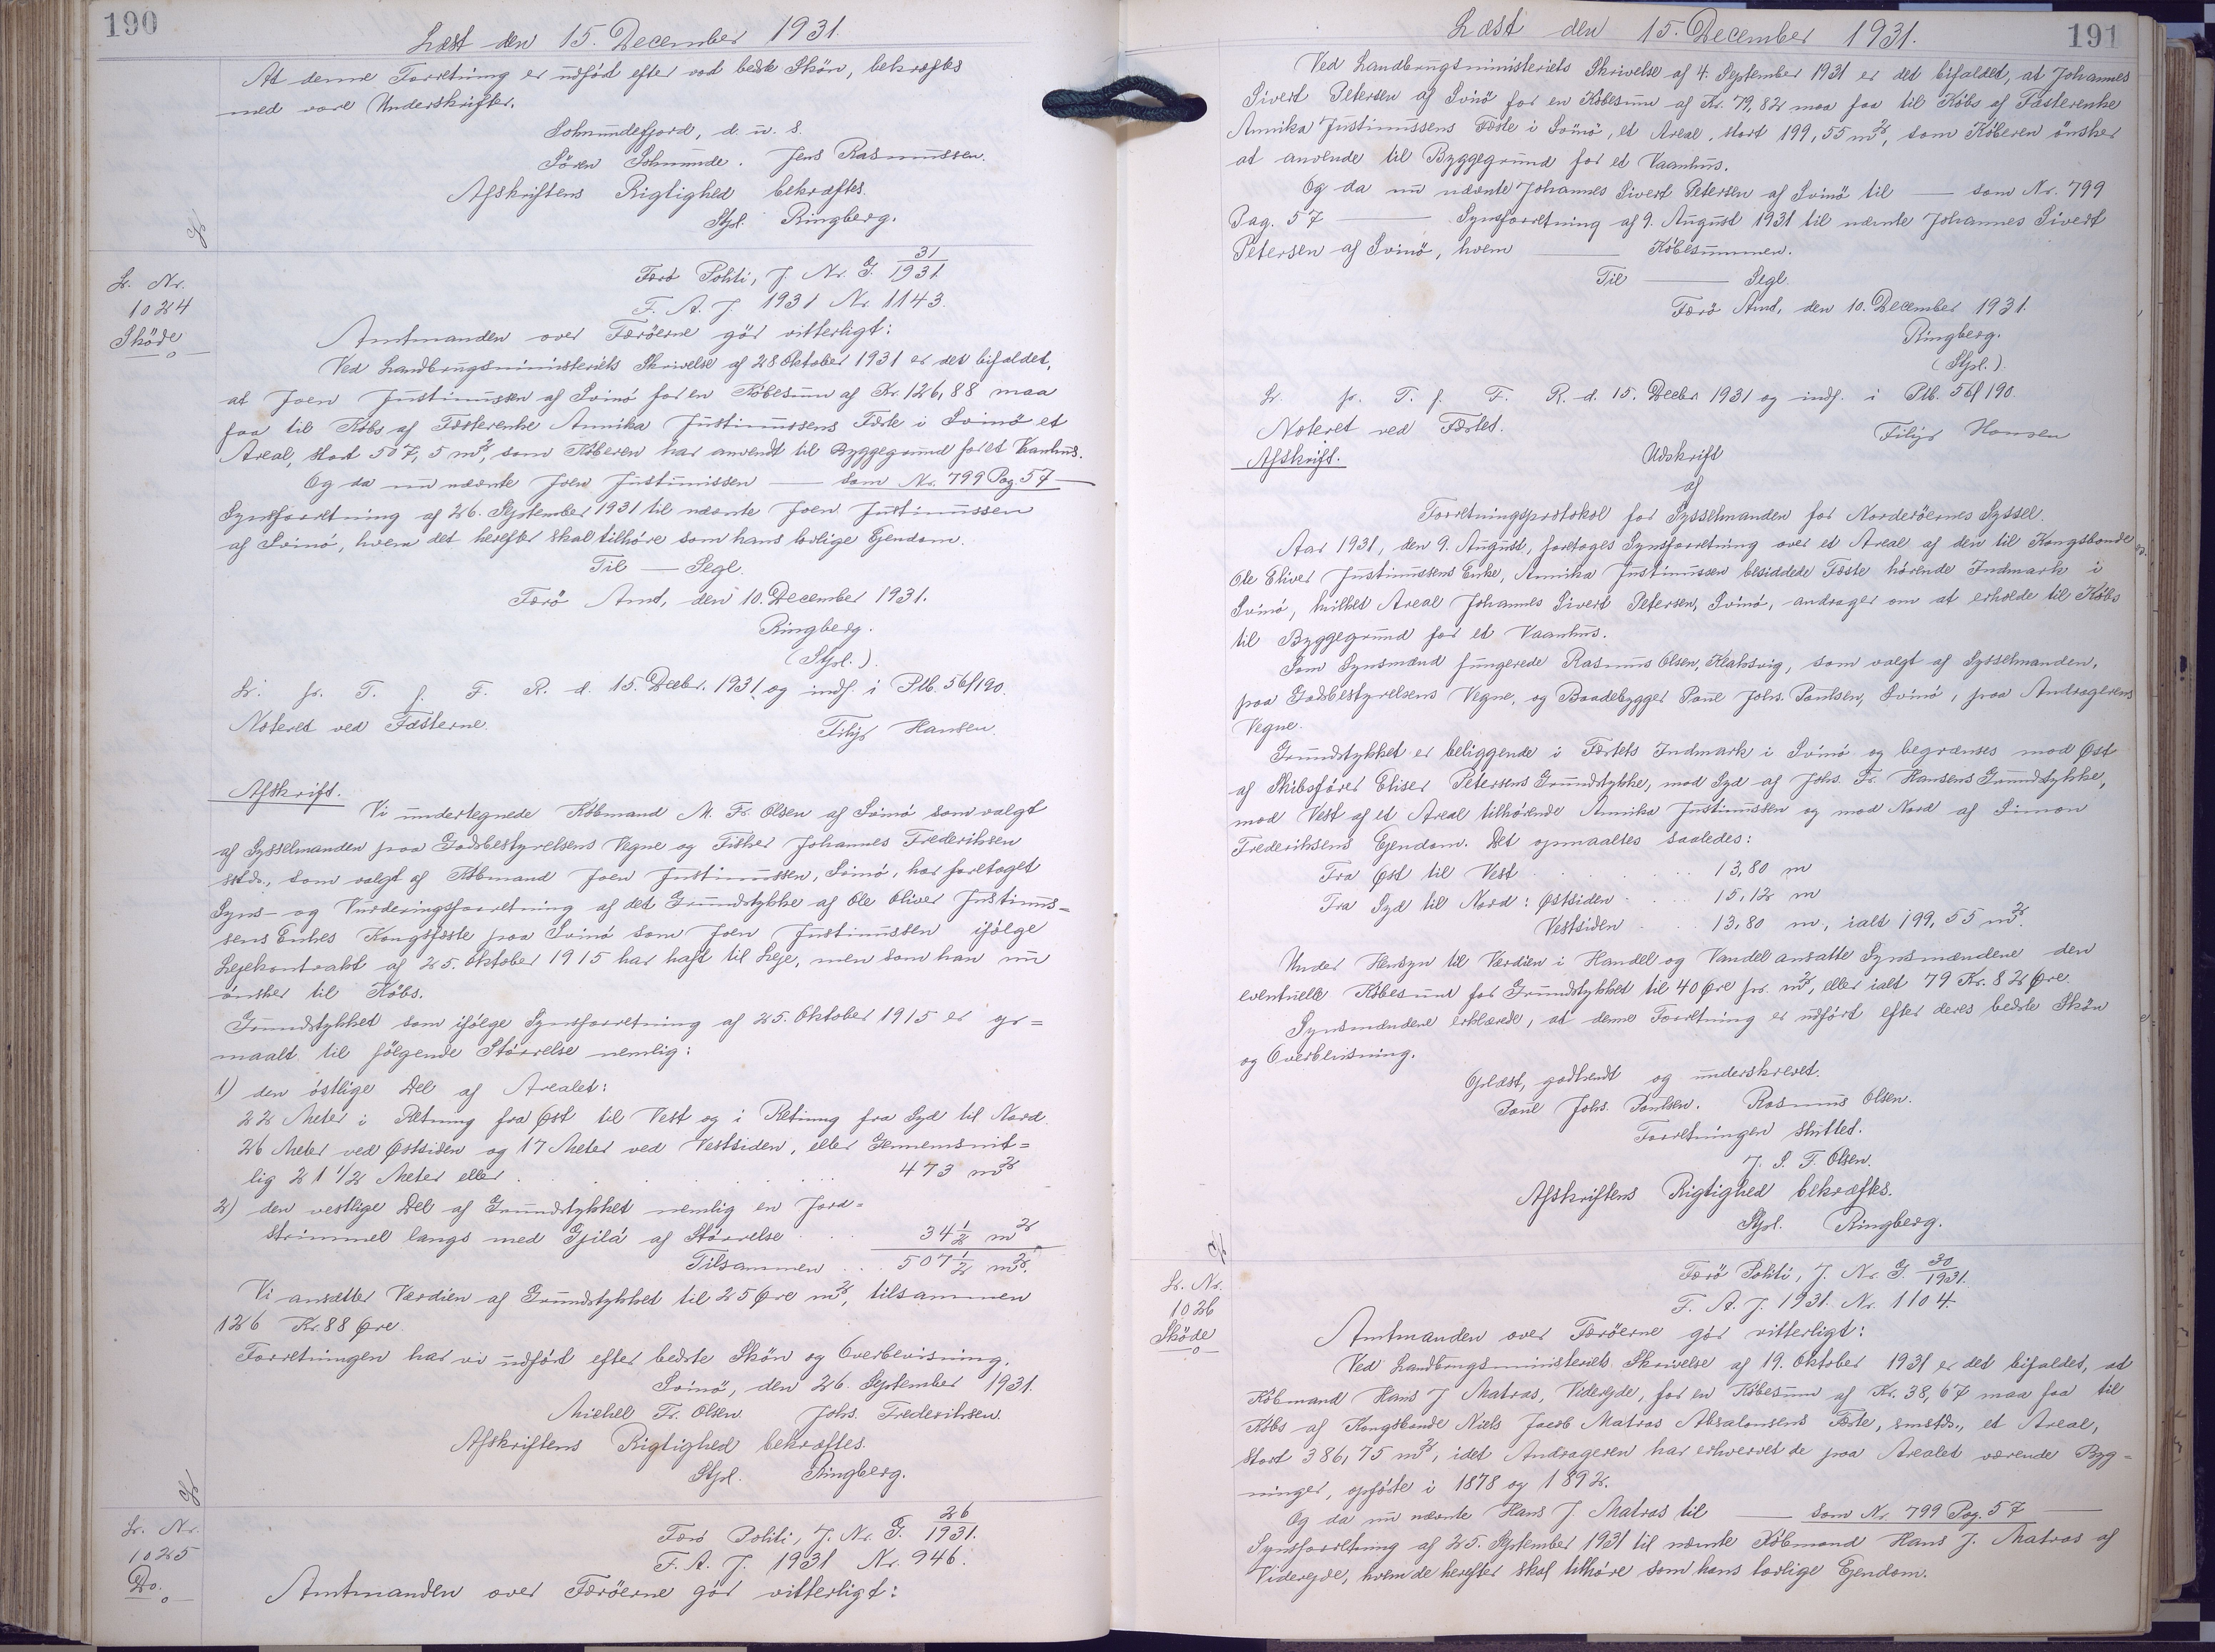 190
Læst den 15. December 1931.
At denne Forretning er udført efter vod bedste Skön, bekræftes
med vore Underskrifter.
Sohnundefjord, d. u. s.
Sören Sohnunde. Jens Rasmussen.
Afskriftens Rigtighed bekræftes.
Stpl. Ringberg.
Lr. Nr.
1024
Sköde
Færö Politi, J. Nr. G. 31/1931
F. A. J. 1931 Nr. 1143.
Amtmanden over Færöerne gör vitterligt:
Ved Landbrugsministeriets Skrivelse af 28 Oktober 1931 er det bifaldet,
at Joen Justinussen af Svinö for en Köbesum af Kr. 126,88 maa
faa til Köbs af Fæsterenke Annika Justinussens Fæste i Svinö et
Areal, stort 507,5 m², som Köberen har anvendt til Byggegrund for et Vaanhus.
Og da nu nævnte Joen Justinissen — som Nr. 799 Pag 57 —
Synsforretning af 26. September 1931 til nævnte Joen Justinussen
af Svinö, hvem det herefter skal tilhöre som hans lovlige Ejendom.
Til — Segl.
Færö Amt, den 10. December 1931.
Ringberg.
(Stpl.).
Lr. fr. T. f. F. R. d. 15. Decbr. 1931 og indf. i Ptb. 56f190.
Noteret ved Fæsterne.
Filip Hansen.
Afskrift.
Vi undertegnede Köbmand M. Fr. Olsen af Svinö som valgt
af Sysselmanden paa Godsbestyrelsens Vegne og Fisker Johannes Frederiksen
sstds., som valgt af Köbmand Joen Justinussen, Svinö, har foretaget
Syns- og Vurderingsforretning af det Grundstykke af Ole Oliver Justinus=
sens Enkes Kongsfæste paa Svinö som Joen Justinussen ifölge
Lejekontrakt af 25. Oktober 1915 har haft til Leje, men som han nu
önsker til Köbs.
Grundstykket som ifölge Synsforretning af 25. Oktober 1915 er op=
maalt til fölgende Störrelse nemlig:
1) den östlige Del af Arealet:
22 Meter i Retning fra Øst til Vest og i Retning fra Syd til Nord
26 Meter ved Østsiden og 17 Meter ved Vestsiden, eller Gennemsnit=
lig 21 1/2 Meter eller . . . . . . 473 m²
2) den vestlige Del af Grundstykket nemlig en Jord=
strimmel langs med Gjilá af Störrelse . . . 34 1/2 m²
Tilsammen . . . 507 1/2 m².
Vi ansætter Værdien af Grundstykket til 25 Øre m², tilsammen
126 Kr. 88 Øre.
Forretningen har vi udfört efter bedste Skön og Overbevisning.
Svinö, den 26. September 1931.
Michel Fr. Olsen. Johs. Frederiksen.
Afskriftens Rigtighed bekræftes.
Stpl. Ringberg.
Lr. Nr.
1025
Do.
Færö Politi, J. Nr. G. 26/1931.
F. A. J. 1931 Nr. 946.
Amtmanden over Færöerne gör vitterligt:
191
Læst den 15. December 1931.
Ved Landbrugsministeriets Skrivelse af 4. September 1931 er det bifaldet, at Johannes
Sivert Petersen af Svinö for en Köbesum af Kr. 79,82 maa faa til Köbs af Fæsterenke
Annika Justinussens Fæste i Svinö, et Areal, stort 199,55 m², som Köberen önsker
at anvende til Byggegrund for et Vaanhus.
Og da nu nævnte Johannes Sivert Petersen af Svinö til — som Nr. 799
Pag. 57 — Synsforretning af 9. August 1931 til nævnte Johannes Sivert
Petersen af Svinö, hvem — Köbesummen.
Til — Segl
Færö Amt, den 10. December 1931.
Ringberg.
(Stpl.).
Lr. fr. T. f. F. R. d. 15. Decbr 1931 og indf. i Ptb. 56f190.
Noteret ved Fæstet.
Filip Hansen
Afskrift.
Udskrift
af
Forretningsprotokol for Sysselmanden for Norderöernes Syssel.
Aar 1931, den 9. August, foretoges Synsforretning over et Areal af den til Kongsbonde
Ole Oliver Justinussens Enke, Annika Justinussen besiddede Fæste hörende Indmark i
Svinö, hvilket Areal Johannes Sivert Petersen, Svinö, andrager om at erholde til Köbs
til Byggegrund for et Vaanhus.
Som Synsmænd fungerede Rasmus Olsen, Klaksvig, som valgt af Sysselmanden,
paa Godsbestyrelsens Vegne, og Baadebygger Poul Johs. Poulsen, Svinö, paa Andragerens
Vegne.
Grundstykket er beliggende i Fæstets Indmark i Svinö og begrænses mod Øst
af Skibsförer Eliser Petersens Grundstykke, mod Syd af Johs. Fr. Hansens Grundstykke,
mod Vest af et Areal tilhörende Annika Justinussen og mod Nord af Simon
Frederiksens Ejendom. Det opmaaltes saaledes:
Fra Øst til Vest . . . . . 13,80 m
Fra Syd til Nord: Østsiden . . . 15,12 m
Vestsiden . . . 13,80 m, ialt 199,55 m².
Under Hensyn til Værdien i Handel og Vandel ansatte Synsmændene den
eventuelle Köbesum for Grundstykket til 40 Øre pr. m², eller ialt 79 Kr. 82 Øre.
Synsmændene erklærede, at denne Forretning er udfört efter deres bedste Skön
og Overbevisning.
Oplæst, godkendt og underskrevet.
Poul Johs. Poulsen. Rasmus Olsen.
Forretningen sluttet.
J. S. F. Olsen.
Afskriftens Rigtighed bekræftes.
Stpl. Ringberg.
Lr. Nr.
1026
Sköde
Færö Politi, J. Nr. G. 30/1931.
F. A. J. 1931. Nr. 1104.
Amtmanden over Færöerne gör vitterligt:
Ved Landbrugsministeriets Skrivelse af 19. Oktober 1931 er det bifaldet, at
Köbmand Hans J. Matras, Viderejde, for en Köbesum af Kr. 38,67 maa faa til
Köbs af Kongsbonde Niels Jacob Matras Absalonsens Fæste, smstds., et Areal,
stort 386,75 m², idet Andrageren har erhvervet de paa Arealet værende Byg=
ninger, opförte i 1878 og 1892.
Og da nu nævnte Hans J. Matras til — som Nr. 799 Pag. 57 —
Synsforretning af 25. September 1931 til nævnte Köbmand Hans J. Matras af
Viderejde, hvem de herefter skal tilhöre som hans lovlige Ejendom.